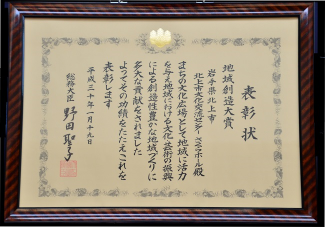 表彰状
地域創造大賞
岩手県北上市
北上市文化交流センター さくらホール殿
まちの文化広場として地域に活力
を与え地域における文化芸術の振興
による創造性豊かな地域づくりに
多大な貢献をされました
よってその功績をたたえこれを
表彰します
平成三十年一月十九日
総務大臣 野田聖子